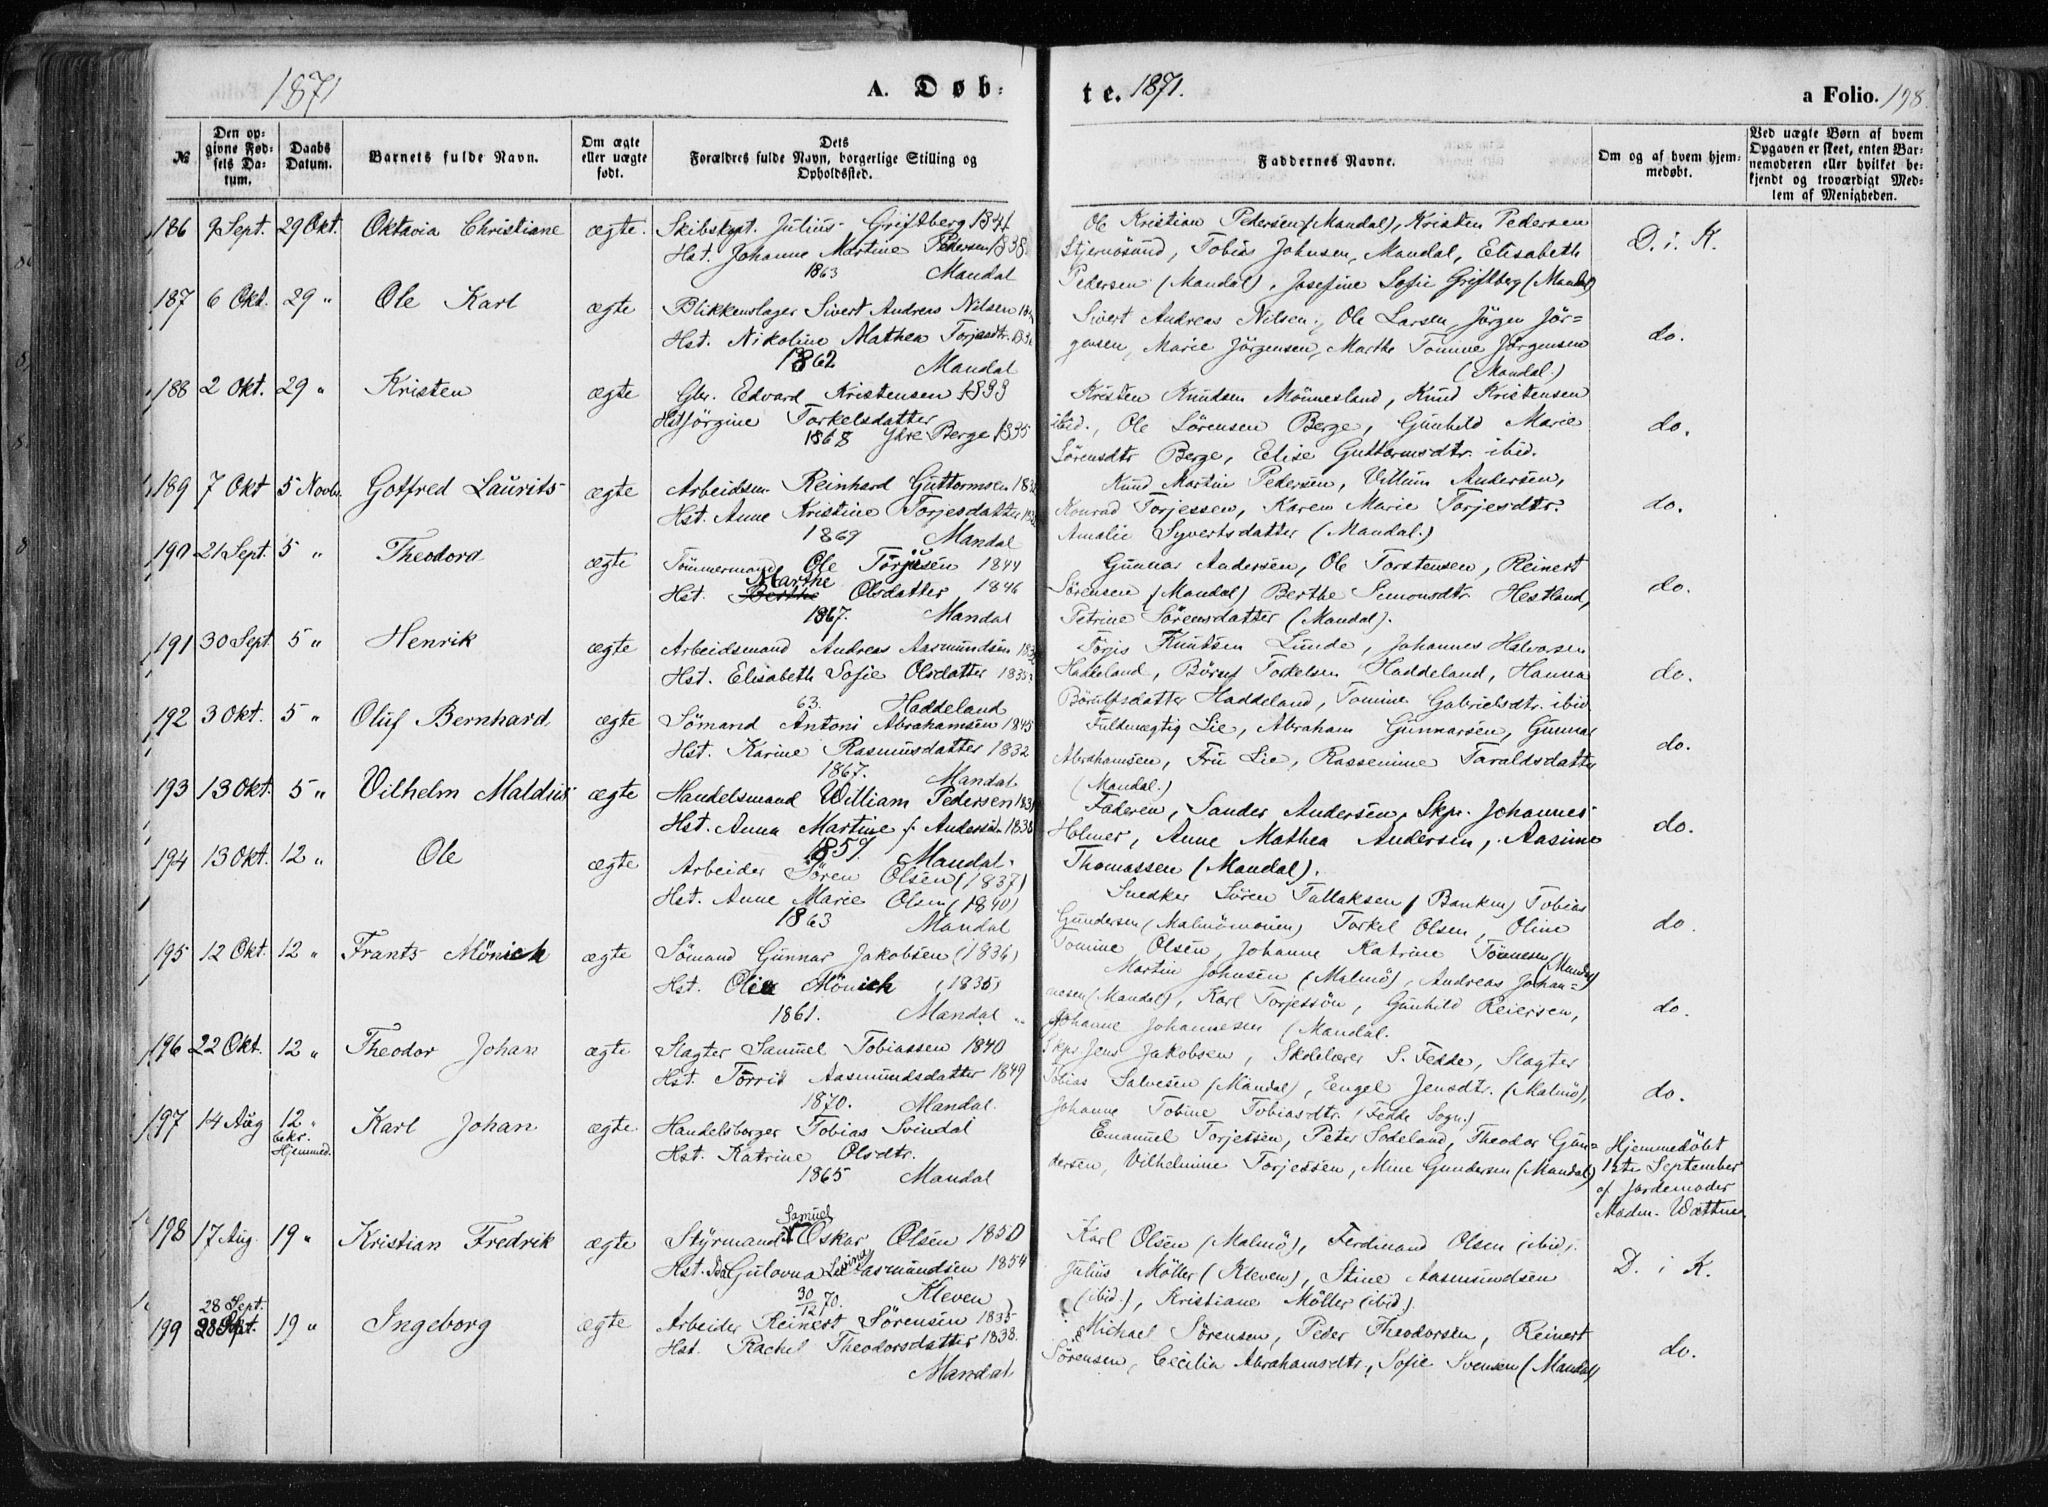 1871
A. Døb-
te. 1871.
a Folio. 198.
№
Den op-
givne Fød-
sels Da-
tum.
Daabs
Datum.
Barnets fulde Navn.
Om ægte
eller uægte
født.
Dets
Forældres fulde Navn, borgerlige Stilling og
Opholdssted.
Faddernes Navne.
Om og af hvem hjem-
medøbt.
Ved uægte Børn af hvem
Opgaven er skeet, enten Bar-
nemoderen eller hvilket be-
kjendt og troværdigt Med-
lem af Menigheden.
186 9 Sept. 29 Okt. Oktavia Christiane ægte. Skibskpt. Julius Griftberg 1841
Hst. Johanne Martine Pedersen 1838
1863 Mandal
Ole Kristian Pedersen (Mandal), Kristen Pedersen
Stjernösund, Tobias Johnsen, Mandal, Elisabeth
Pedersen (Mandal), Josefine Sofie Griftberg (Mandal)
D. i. K.
187 6 Okt. 29 " Ole Karl ægte Blikkenslager Sivert Andreas Nilsen
Hst. Nikoline Mathea Torjesdtr.
1862 Mandal
Sivert Andreas Nilsen, Ole Larsen, Jörgen Jör-
gensen, Marie Jörgensen, Marthe Tomine Jörgensen
(Mandal.)
do.
188 2 Okt. 29 " Kristen ægte Gbr. Edvard Kristensen 1833
Hst Jörgine Torkelsdatter
1868 Ydre Berge 1835
Kristen Knudsen Mönnesland, Knud Kristensen
ibid., Ole Sörensen Berge, Gunhild Marie
Sörensdtr Berge, Elise Guttormsdtr. ibid.
do.
189 7 Okt 5 Novbr. Gotfred Laurits ægte Arbeidsm Reinhard Guttormsen
Hst. Anne Kristine Torjesdatter
1869 Mandal
Knud Martin Pedersen, Villum Andersen,
Konrad Torjessen, Karen Marie Torjesdtr.
Amalie Syvertsdatter (Mandal.)
do.
190 21 Sept. 5 " Theodora ægte Tömmermand Ole Torjusen 1844
Marthe
Hst. Berthe Olsdatter 1846
1867. Mandal
Gunnar Andersen, Ole Torstensen, Reinert
Sörensen (Mandal) Berthe Simonsdtr. Hestland,
Petrine Sörensdatter (Mandal).
do.
191 30 Sept. 5 " Henrik ægte Arbeidsmand Andreas Aasmundsen
Hst. Elisabeth Sofie Olsdatter 1835
63. Haddeland
Torjis Knutsen Lunde, Johannes Halvorsen
Haddeland, Börulf Torkelsen Haddeland, Hanna
Börulfsdatter Haddeland, Tomine Gabrielsdtr. ibid
do.
192 3 Okt. 5 " Oluf Bernhard ægte Sömand Antoni Abrahamsen 1845
Hst. Karine Rasmusdatter 1832
1867. Mandal
Fuldmægtig Lie, Abraham Gunnarsen, Gunnar
Abrahamsen, Fru Lie, Rassemine Taraldsdatter
(Mandal.)
do.
193 13 Okt. 5 " Vilhelm Maldius ægte Handelsmand William Pedersen
Hst. Anna Martine f. Andersen 1838
1859. Mandal.
Faderen, Sander Andersen, Skpr. Johannes
Holmer, Anne Mathea Andersen, Aasine
Thomassen (Mandal).
do.
194 13 Okt. 12 " Ole ægte Arbeider Sören Olsen (1837)
Hst. Anne Marie Olsen (1840)
1863 Mandal
Snedker Sören Tallaksen (Banken) Tobias
Gundersen (Malmömonen) Torkel Olsen, Oline
Tomine Olsen Johanne Katrine Tönnesen (Mandal)
do.
195 12 Okt. 12 " Frants Mönich ægte Sömand Gunnar Jakobsen (1836)
Hst. Olia Mönich (1835)
1861. Mandal
Martin Johnsen (Malmö), Andreas Johan-
nesen (Mandal), Karl Torjessön, Gunhild Reiersen,
Johanne Johannesen (Mandal.
do.
196 22 Okt. 12 " Theodor Johan ægte Slagter Samuel Tobiassen 1840
Hst. Torrid Aasmundsdatter 1849
1870. Mandal.
Skpr Jens Jakobsen, Skolelærer S. Fedde, Slagter
Tobias Salvesen (Mandal), Engel Jensdtr. (Malmö),
Johanne Tobine Tobiasdtr. (Fedde Sogn.)
do.
197 14 Aug 12 " Karl Johan ægte Handelsborger Tobias Svindal
bekr.
Hjemmed.
Hst. Katrine Olsdtr.
1865 Mandal
Emanuel Torjessen, Peter Sodeland, Theodor Gun-
dersen, Vilhelmine Torjessen, Mine Gundersen (Mandal)
Hjemmedöbt
1ste September
af Jordemoder
Madm.
198 17 Aug. 19 " Kristian Fredrik ægte Styrmand Samuel Oskar Olsen 1850
Hst. Gulovna Aasmundsen 1854
30/12 70. Kleven
Karl Olsen (Malmö), Ferdinand Olsen ibid).
Julius Möller (Kleven), Stine Aasmundsen
(ibid.), Kristiane Möller (ibid.)
D. i K.
28 Sept.
199 28 Spt. 19 " Ingeborg ægte Arbeider Reinert Sörensen 1835
Hst. Rachel Theodorsdatter 1838.
Mandal.
Michael Sörensen, Peder Theodorsen, Reinert
Sörensen, Cecilia Abrahamsdtr, Sofie Svensen (Mandal)
do.